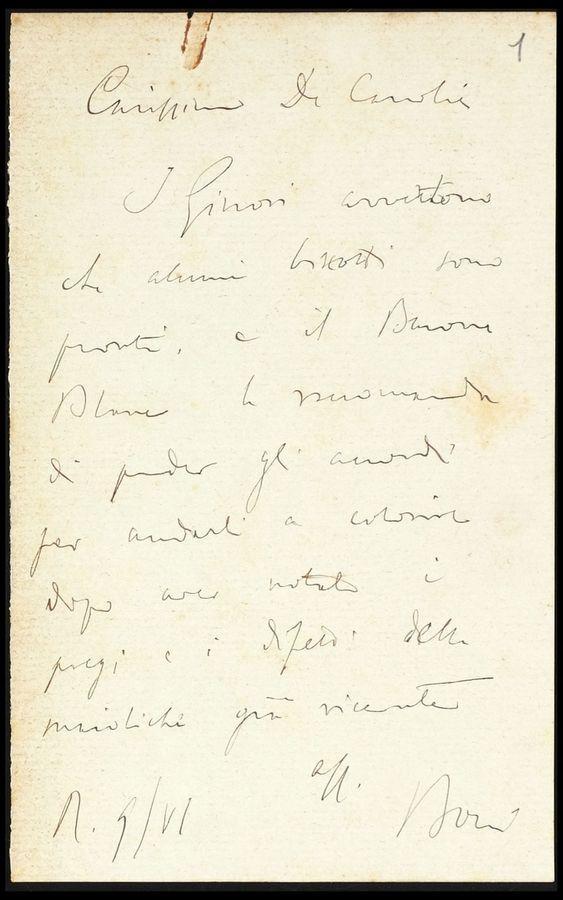 1
Carissimo De Carolis
I Ginori avvertono
che alcuni biscotti sono
pronti, e il Barone
Blanc le raccomanda
di prender gli accordi
per andarli a colorire
dopo aver notato i
pregi e i difetti delle
maioliche già ricevute
aff.
R. 9/VI Boni